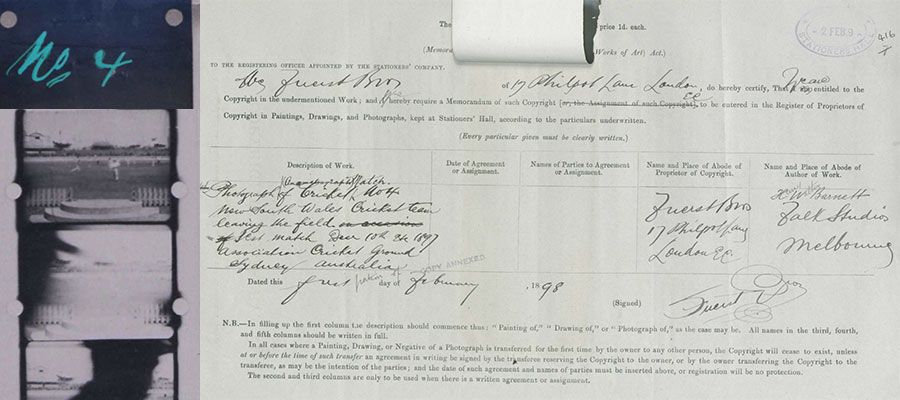 No 4
The
price 1d. each.
2 FEB 9
STATIONERS' HALL
416
(Memor
Works of Art) Act.)
TO THE REGISTERING OFFICER APPOINTED BY THE STATIONERS' COMPANY.
We Fuerst Bros of 17 Philpot Lane London EC, do hereby certify, That we are entitled to the
Copyright in the undermentioned Work; and hereby require a Memorandum of such Copyright (or, the Assignment of such Copyright), to be entered in the Register of Proprietors of
Copyright in Paintings, Drawings, and Photographs, kept at Stationers' Hall, according to the particulars underwritten.
(Every particular given must be clearly written.)
Description of Work.
Date of Agreement or Assignment.
Names of Parties to Agreement or Assignment.
Name and Place of Abode of Proprietor of Copyright.
Name and Place of Abode of Author of Work.
Photograph of Cricket Match No 4
New South Wales Cricket team
leaving the field
Test match Decr 10th 24 1897
Association Cricket Ground
Sydney Australia
COPY ANNEXED
Fuerst Bros
17 Philpot Lane
London E.C.
H W Barnett
Falk Studios
Melbourne
Dated this first day of February 1898
(Signed) Fuerst Bros
N.B.—In filling up the first column the description should commence thus: "Painting of," "Drawing of," or "Photograph of," as the case may be. All names in the third, fourth,
and fifth columns should be written in full.
In all cases where a Painting, Drawing, or Negative of a Photograph is transferred for the first time by the owner to any other person, the Copyright will cease to exist, unless
at or before the time of such transfer an agreement in writing be signed by the transferee reserving the Copyright to the owner, or by the owner transferring the Copyright to the
transferee, as may be the intention of the parties; and the date of such agreement and names of parties must be inserted above, or registration will be no protection.
The second and third columns are only to be used when there is a written agreement or assignment.